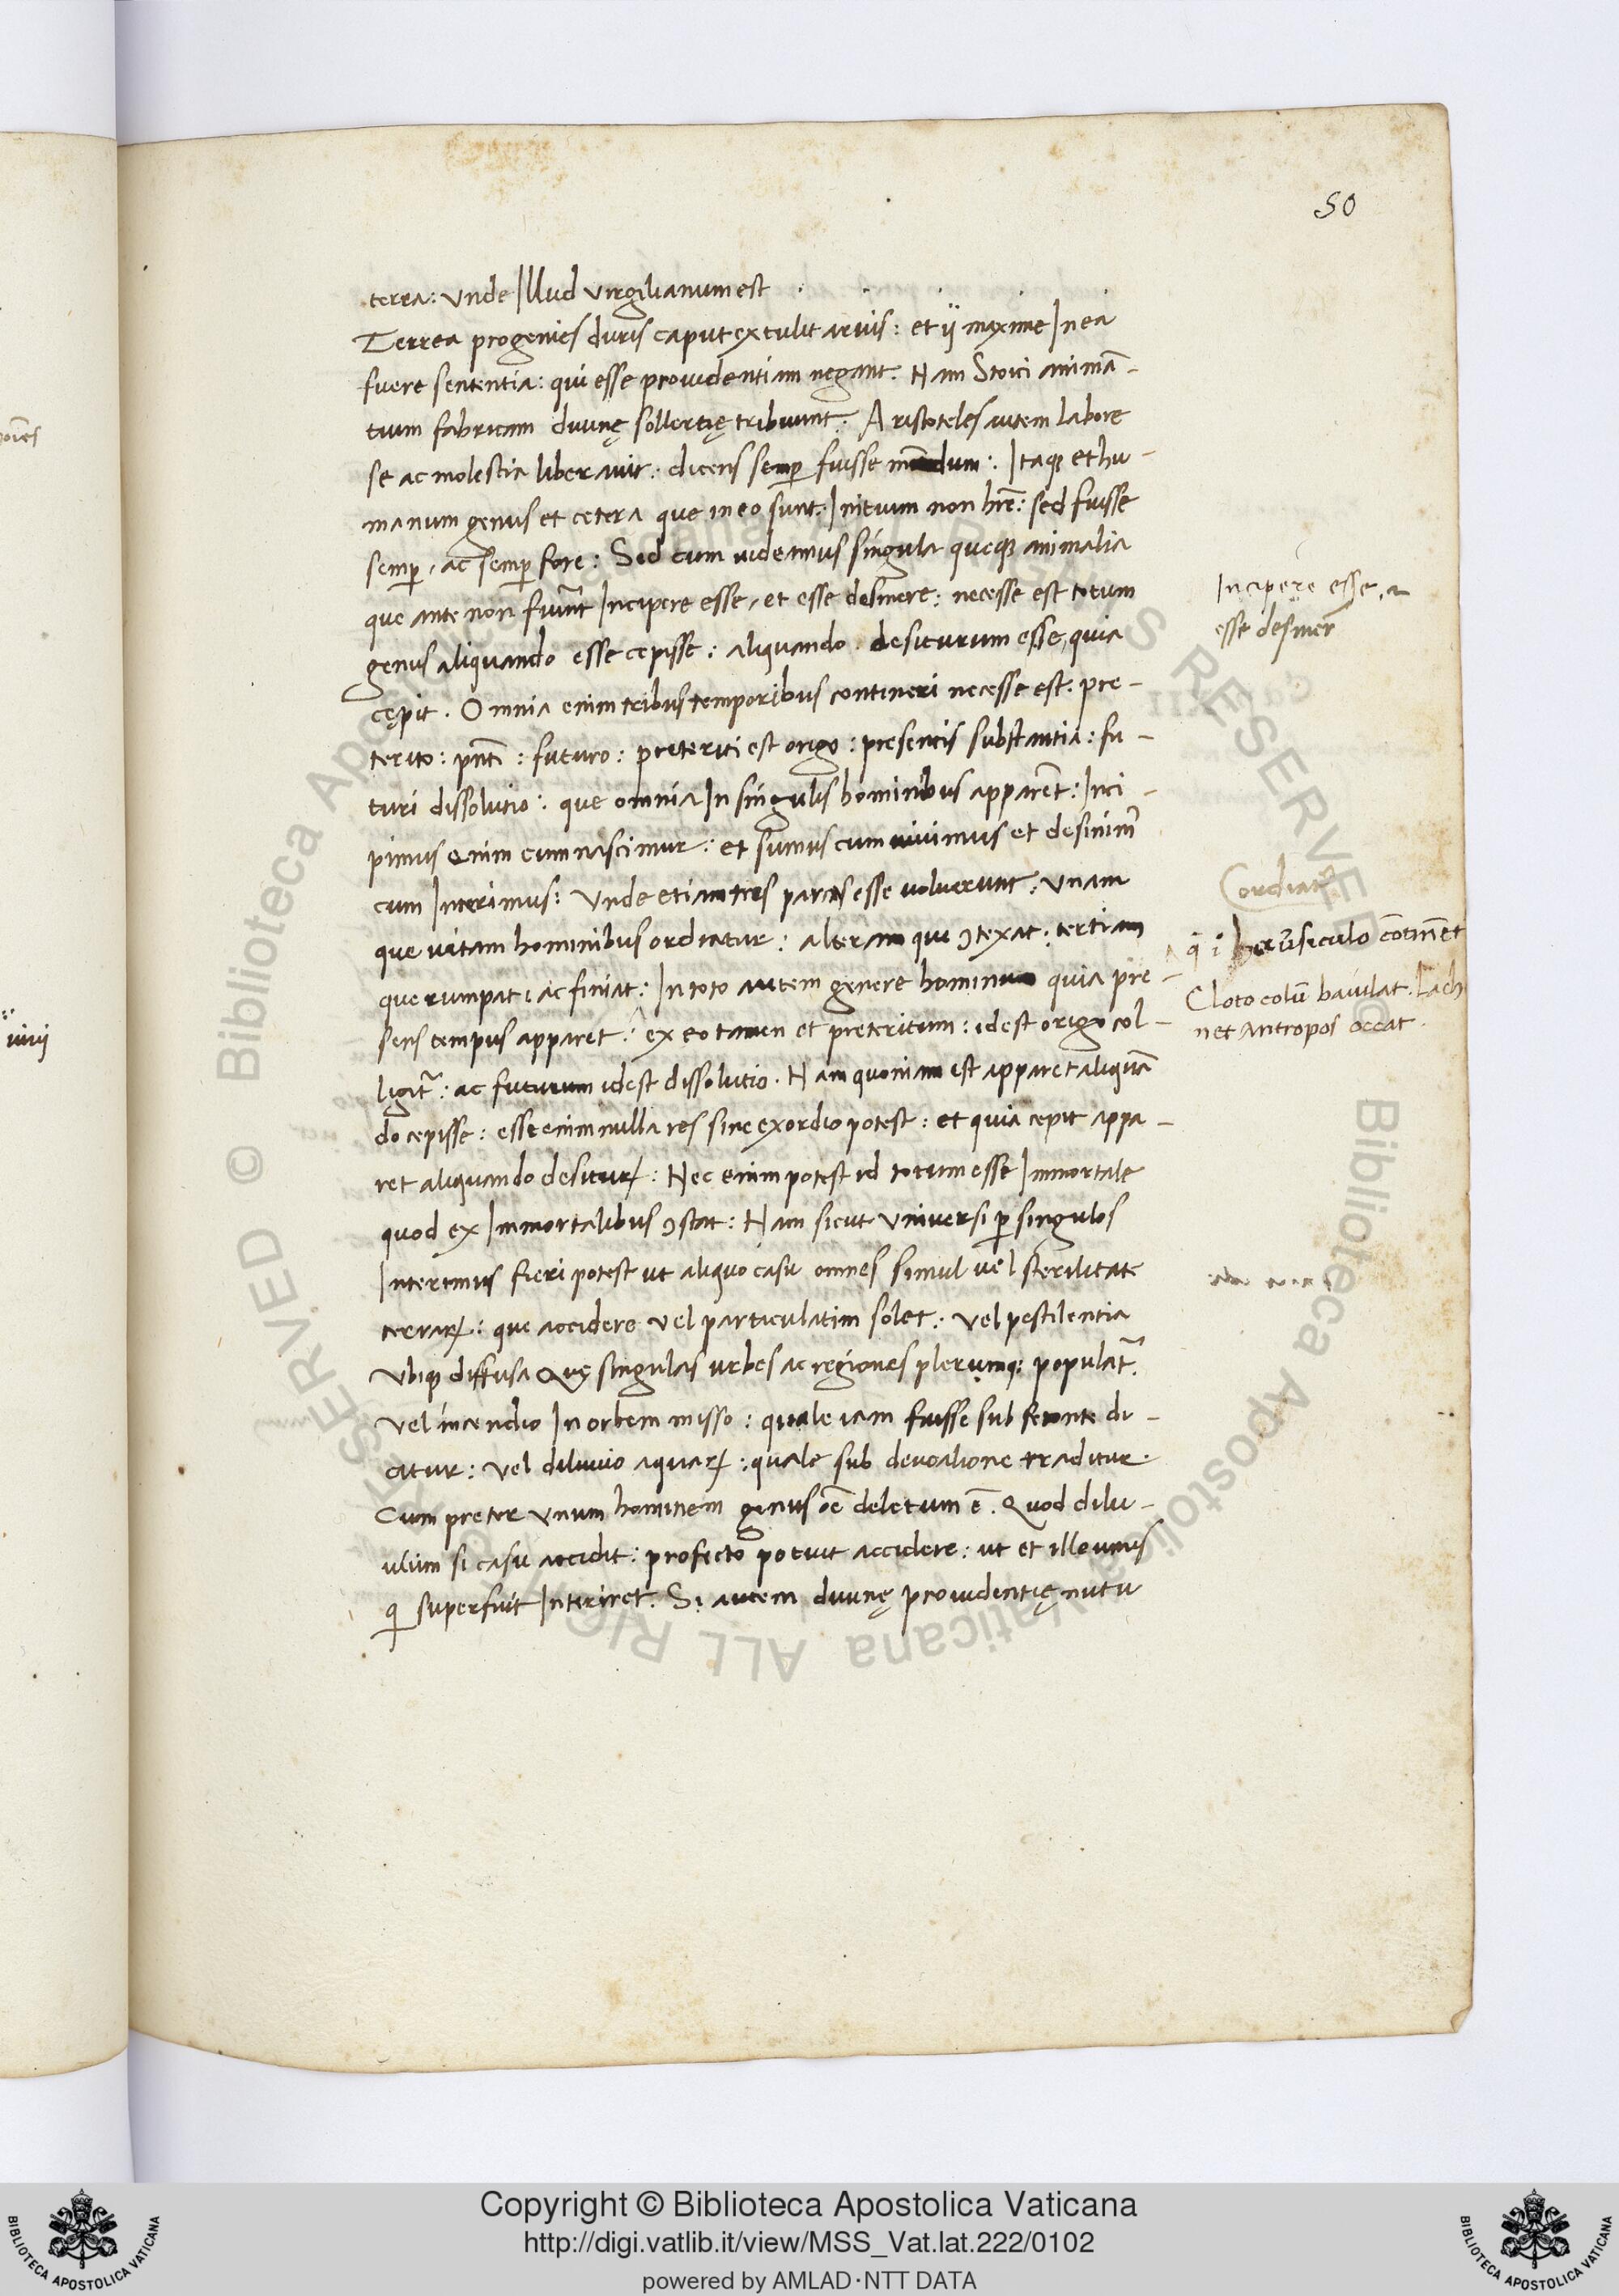 50
terra: unde Illud virgilianum est
Terrea progenies duris caput extulit arvis: et ii maxime In ea
fuere sententia: qui esse providentiam negant. Nam Stoici animā-
tium fabricam divinę sollertię tribuunt. Aristoteles autem labore
se ac molestia liberavit: dicens semꝑ fuisse mundum: Itaqꝫ et hu-
manum genus et cetera que in eo sunt: Initium non hr̄e: sed fuisse
semꝑ, ac semꝑ fore: Sed cum videamus singula queqꝫ animalia
que ante non fuer̄nt Incipere esse, et esse desinere: necesse est totum
genus aliquando esse cepisse: aliquando desiturum esse, quia
cępit. Omnia enim tribus temporibus contineri necesse est. pre-
terito: pn̄ti: futuro: preteriti est origo: presentis substantia: fu-
turi dissolutio: que omnia In singulis hominibus apparēt: Inci-
pimus enim cum nascimur: et sumus cum vivimus et desinim᷒
cum Interimus: Unde etiam tres parcas esse voluerunt: Unam
que vitam hominibus ordiatur: alteram que ꝯtexat: tertiam
que rumpat: ac finiat: In toto autem genere hominum quia pre-
sens tempus apparet: ex eo tamen et preteritum: idest origo col-
ligit᷒: ac futurum idest dissolutio. Nam quoniam est apparet aliquā
do cepisse: esse enim nulla res sine exordio potest: et quia cepit appa-
ret aliquando desiturꝝ: Nec enim potest id totum esse Immortale
quod ex Immortalibus ꝯstat: Nam sicut Universi ꝑ singulos
Interimus fieri potest ut aliquo casu omnes simul vel sterilitate
terrarꝝ: que accidere vel particulatim solet: Vel pestilentia
Ubiqꝫ diffusa Quę singulas urbes ac regiones plerumqꝫ populat᷒
Vel incendio In orbem misso: quale iam fuisse sub fetonte di-
citur: Vel diluvio aquarꝝ: quale sub deucalione traditur.
Cum preter Unum hominem genus oē deletum ē. Quod dilu-
vium si casu accidit: profecto potuit accidere: ut et ille unus
qͥ superfuit Interiret. Si autem divinę providentię nutu
Incipere esse,
esse desiner̄
ordiat᷒
Cloto colū baiulat. Lach
net Antropos occat.